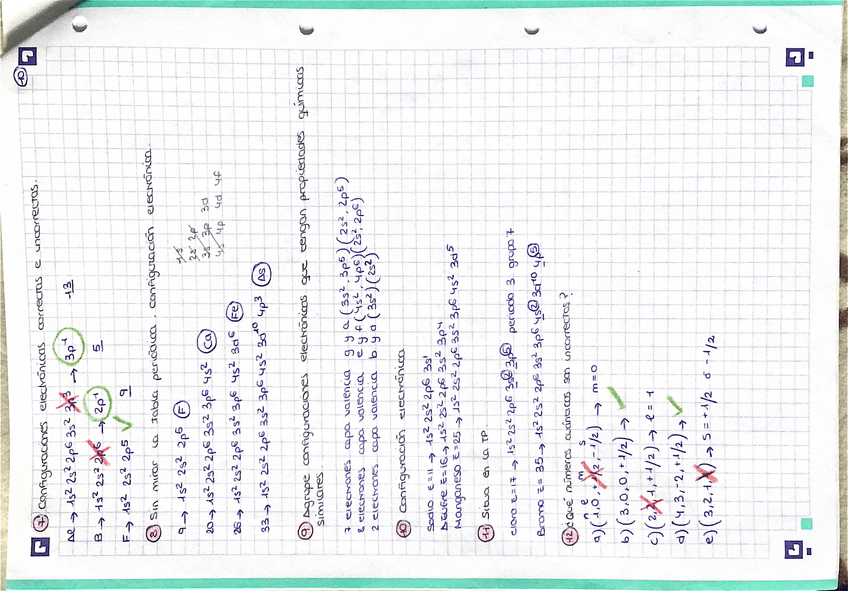 10
7 Configuraciones electrónicas correctas e incorrectas.
Al → 1s² 2s² 2p⁶ 3s² 3p³ → 3p¹ 13
B → 1s² 2s² 2p⁶ → 2p¹ 5
F → 1s² 2s² 2p⁵ ✓ 9
8 Sin mirar la tabla periódica. Configuración electrónica.
9 → 1s² 2s² 2p⁵ (F)
20 → 1s² 2s² 2p⁶ 3s² 3p⁶ 4s² (Ca)
26 → 1s² 2s² 2p⁶ 3s² 3p⁶ 4s² 3d⁶ (Fe)
33 → 1s² 2s² 2p⁶ 3s² 3p⁶ 4s² 3d¹⁰ 4p³ (As)
1s
2s 2p
3s 3p 3d
4s 4p 4d 4f
9 Agrupe configuraciones electrónicas que tengan propiedades químicas
similares.
7 electrones capa valencia g y a (3s², 3p⁵) (2s², 2p⁵)
8 electrones capa valencia e y f (4s², 4p⁶) (2s², 2p⁶)
2 electrones capa valencia b y d (3s²) (2s²)
10 Configuración electrónica
Sodio Z=11 → 1s² 2s² 2p⁶ 3s¹
Azufre Z=16 → 1s² 2s² 2p⁶ 3s² 3p⁴
Manganeso Z=25 → 1s² 2s² 2p⁶ 3s² 3p⁶ 4s² 3d⁵
11 Situa en la TP.
Cloro Z=17 → 1s² 2s² 2p⁶ 3s² 3p⁵ periodo 3 grupo 7
Bromo Z=35 → 1s² 2s² 2p⁶ 3s² 3p⁶ 4s² 3d¹⁰ 4p⁵
12 ¿Qué números cuánticos son incorrectos?
n e m s
a) (1,0,+1/2,-1/2) → m=0
b) (3,0,0,+1/2) → ✓
c) (2,2,1,+1/2) → e=1
d) (4,3,-2,+1/2) → ✓
e) (3,2,1,1) → s=+1/2 o -1/2